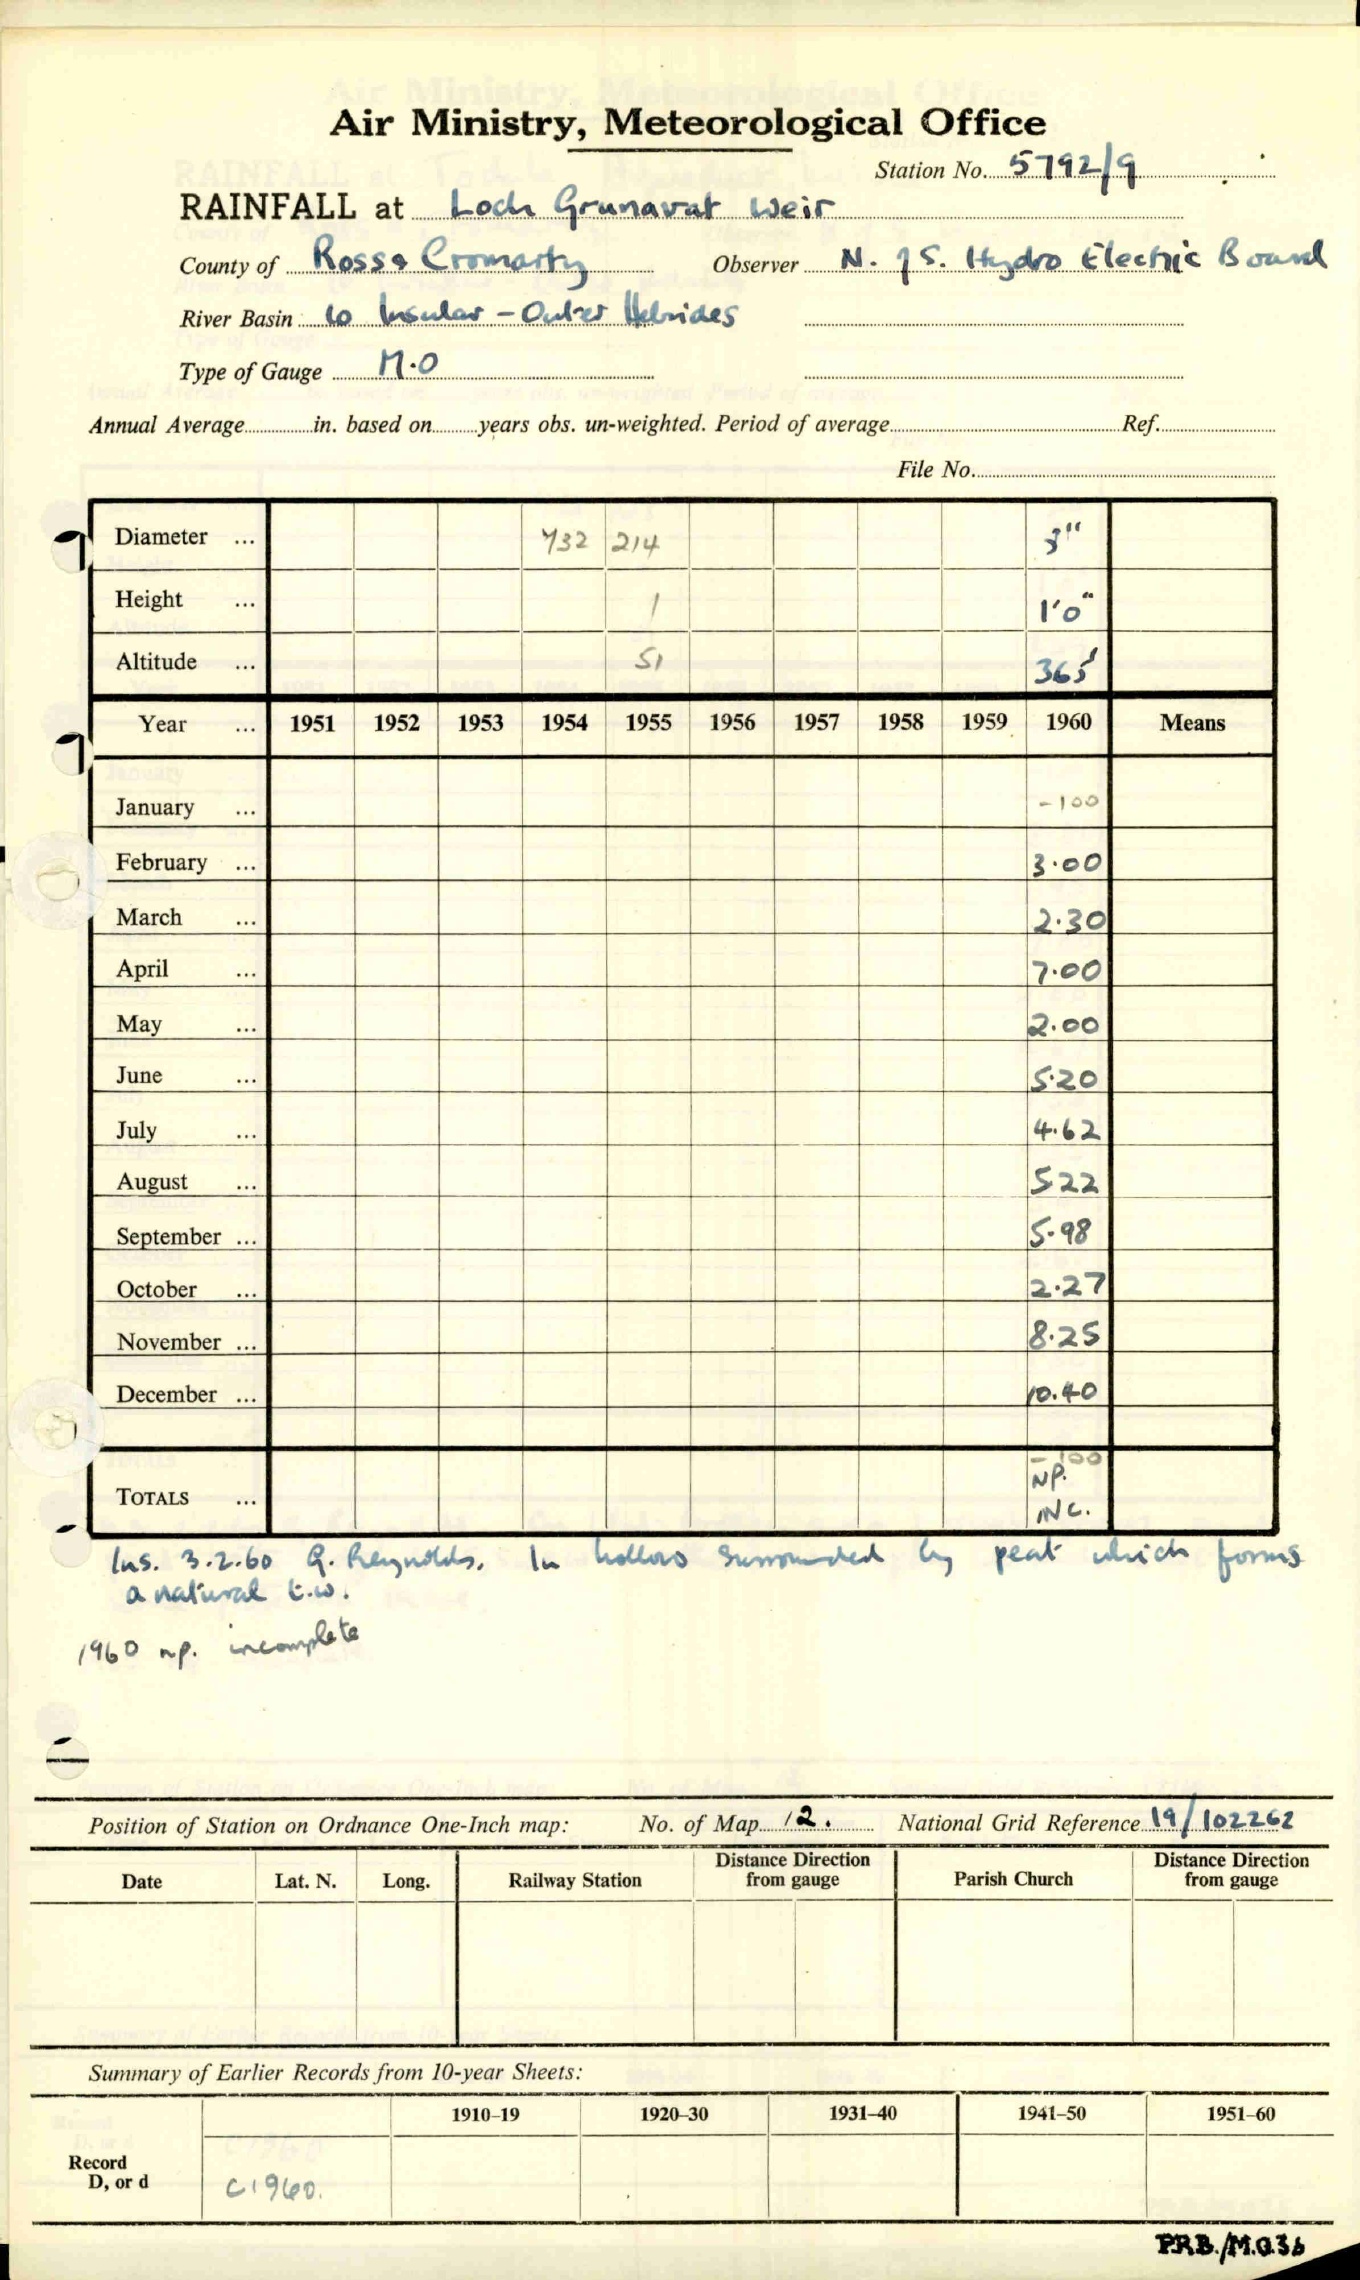 Air Ministry, Meteorological Office
Station No. 5792/9
RAINFALL at Loch Grunavat Weir
County of Ross & Cromarty Observer N. of S. Hydro Electric Board
River Basin 10 Insular - Outer Hebrides
Type of Gauge M.O
Annual Average in. based on years obs. un-weighted. Period of average Ref.
File No.
Diameter ... 732 214 3"
Height ... 1 1'0"
Altitude ... 51 365'
Year ... 1951 1952 1953 1954 1955 1956 1957 1958 1959 1960 Means
January ... -100
February ... 3.00
March ... 2.30
April ... 7.00
May ... 2.00
June ... 5.20
July ... 4.62
August ... 522
September ... 5.98
October ... 2.27
November ... 8.25
December ... 10.40
-100
NP.
TOTALS ... INC.
Ins. 3.2.60 G. Reynolds. In hollow surrounded by peat which forms
a natural t.w.
1960 np. incomplete
Position of Station on Ordnance One-Inch map: No. of Map 12. National Grid Reference 19/102262
Date Lat. N. Long. Railway Station Distance Direction from gauge Parish Church Distance Direction from gauge
Summary of Earlier Records from 10-year Sheets:
1910-19 1920-30 1931-40 1941-50 1951-60
Record
D, or d C1960.
P.R.B./M.O.36